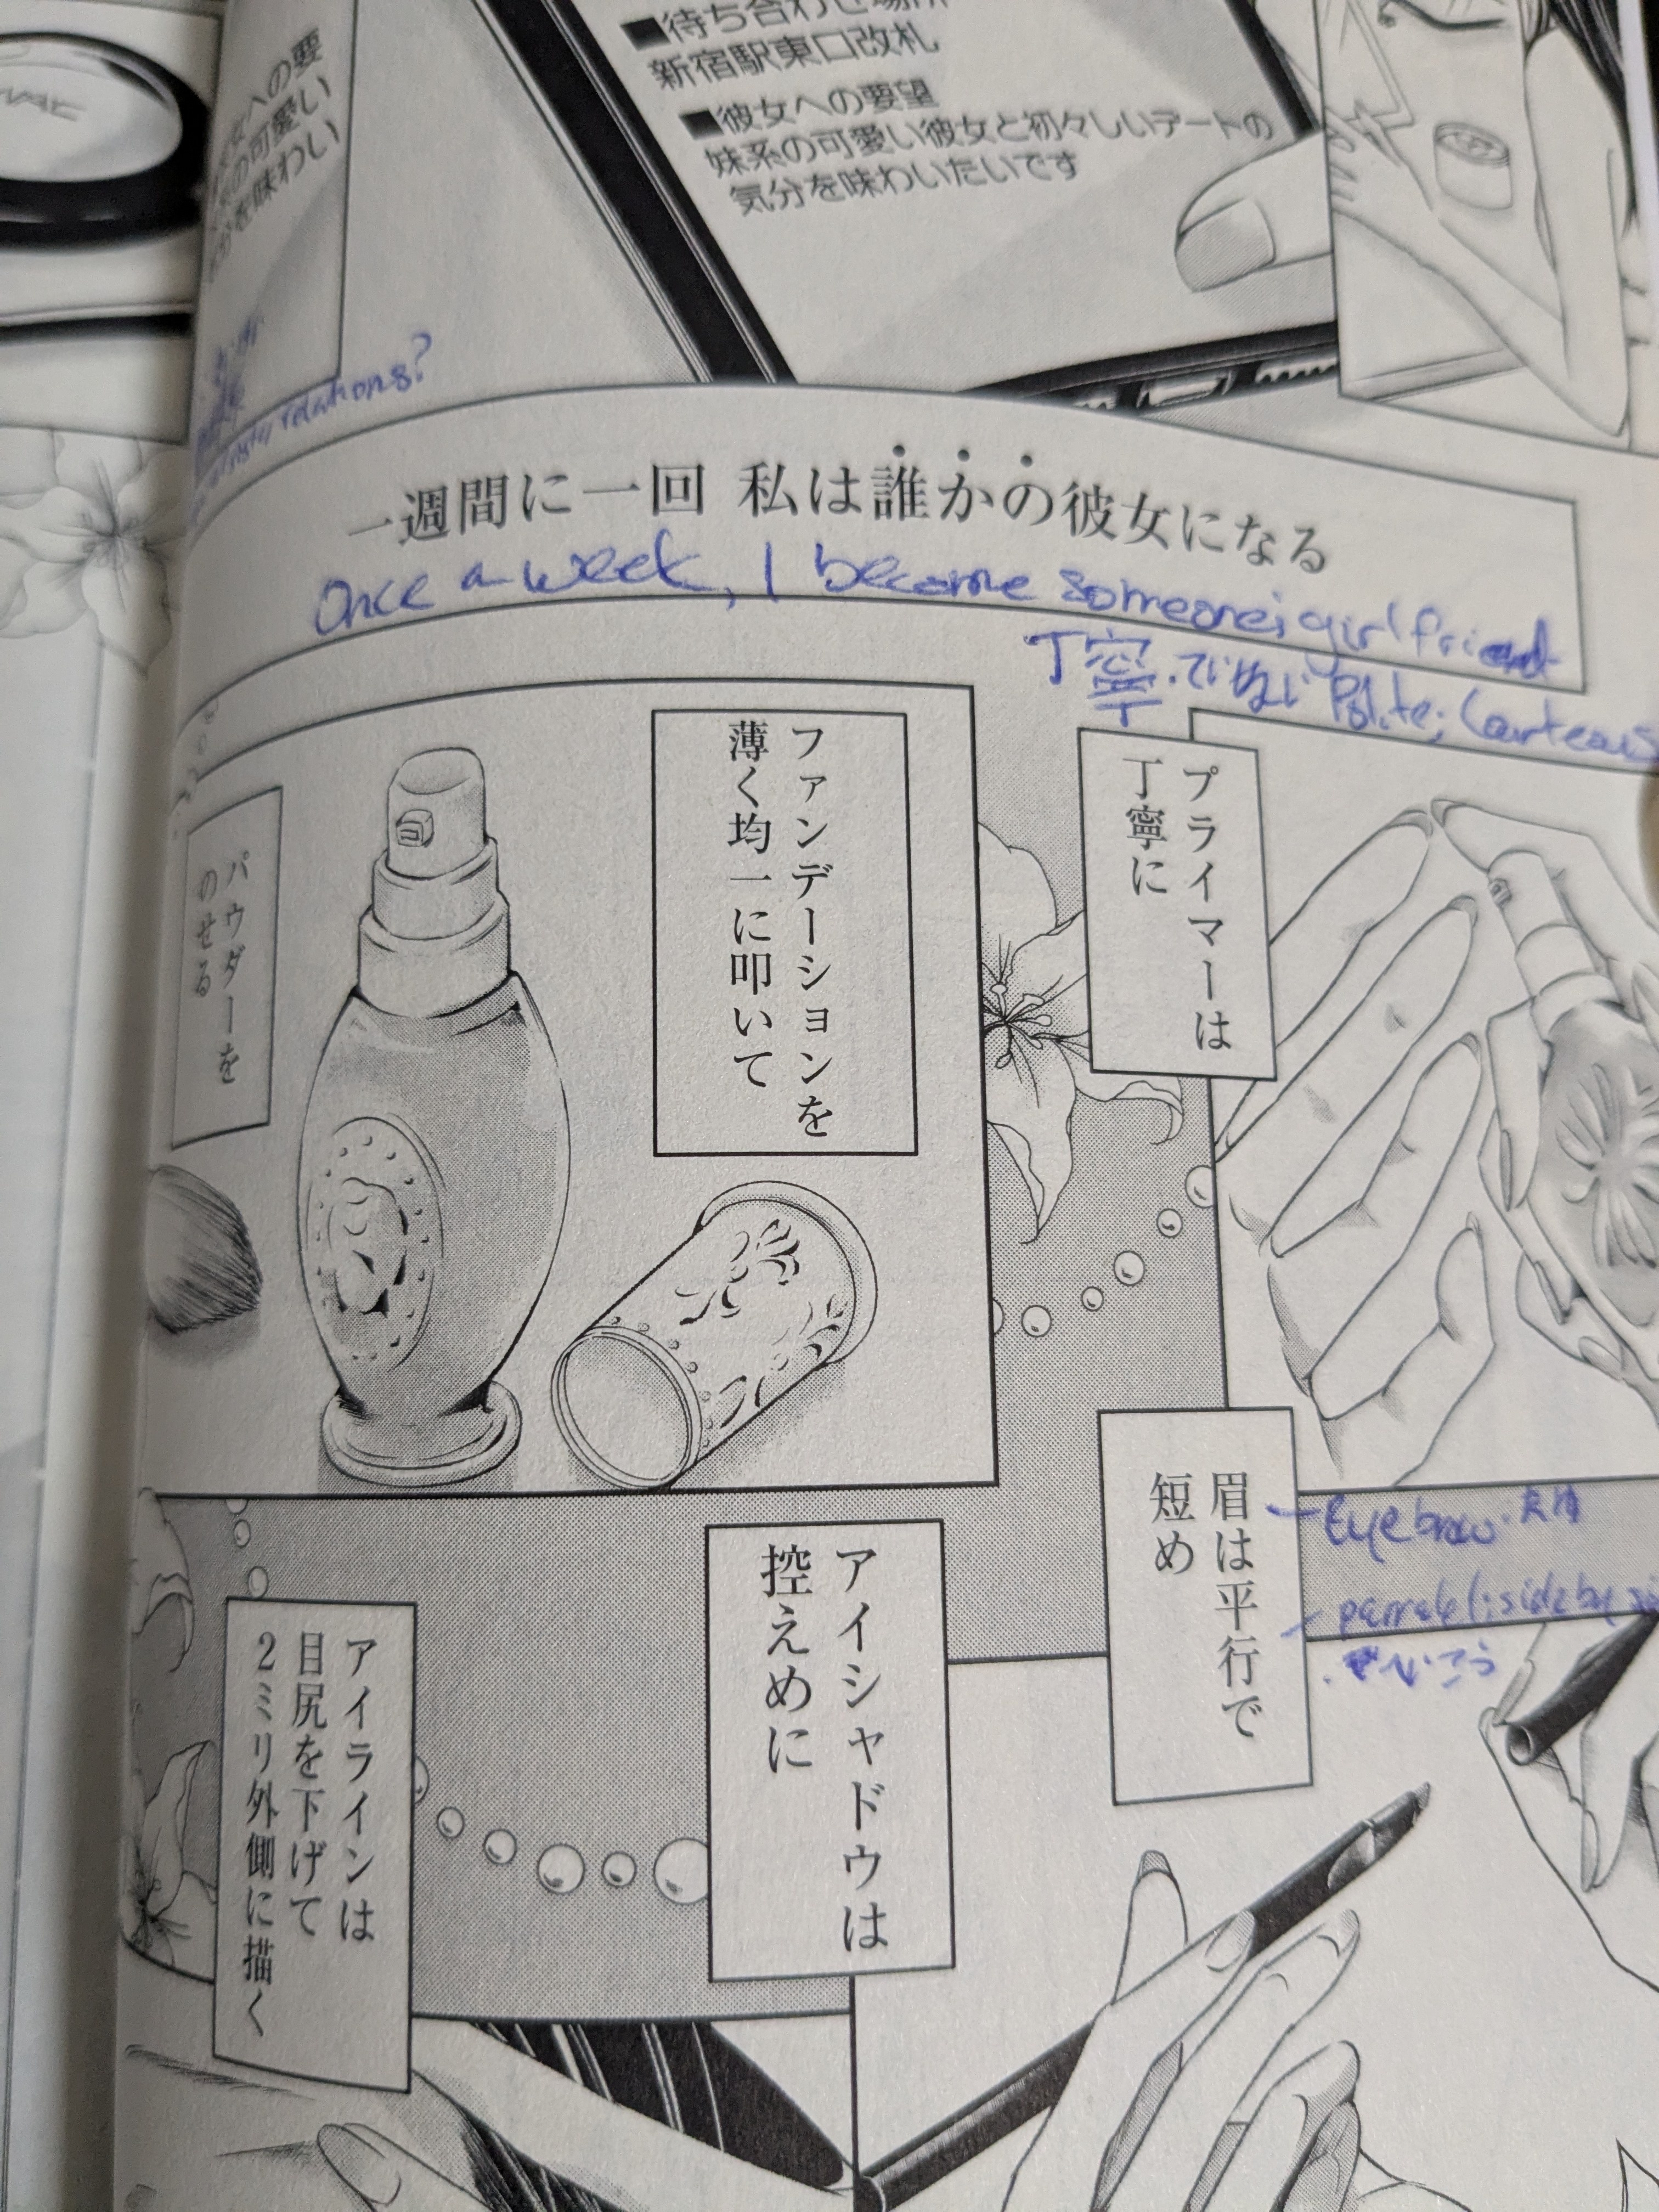 ■待ち合わせ場所
新宿駅東口改札
■彼女への要望
妹系の可愛い彼女と初々しいデートの
気分を味わいたいです
女への要
の可愛い
を味わい
relations?
一週間に一回 私は誰かの彼女になる
Once a week, I become someone's girlfriend
丁寧・ていねい Polite; Courteous
プライマーは
丁寧に
ファンデーションを
薄く均一に叩いて
パウダーを
のせる
眉は平行で
短め
Eyebrow
へいこう
アイシャドウは
控えめに
アイラインは
目尻を下げて
2ミリ外側に描く